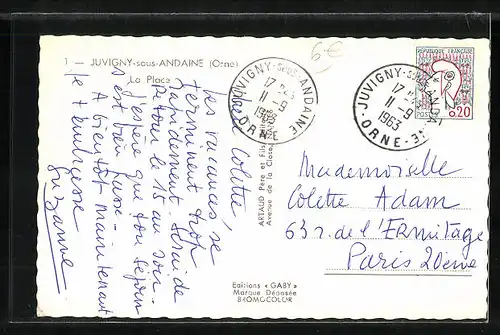 1 - JUVIGNY-sous-ANDAINE (Orne)
La Place
6€
Chère Colette,
Les vacances se
terminent trop
rapidement. Suis de
retour le 15 au soir.
J'espère que ton séjour
s'est bien passé.
A bientôt maintenant
Je t'embrasse
Suzanne
ARTAUD Père et Fils
Avenue de la Close
JUVIGNY-sous-ANDAINE
17H
11-9
1963
ORNE
JUVIGNY-sous-ANDAINE
17H
11-9
1963
ORNE
REPUBLIQUE FRANÇAISE
POSTES
0,20
Mademoiselle
Colette Adam
63 r. de l'Ermitage
Paris 20eme
Editions « GABY »
Marque Déposée
BROMOCOLOR